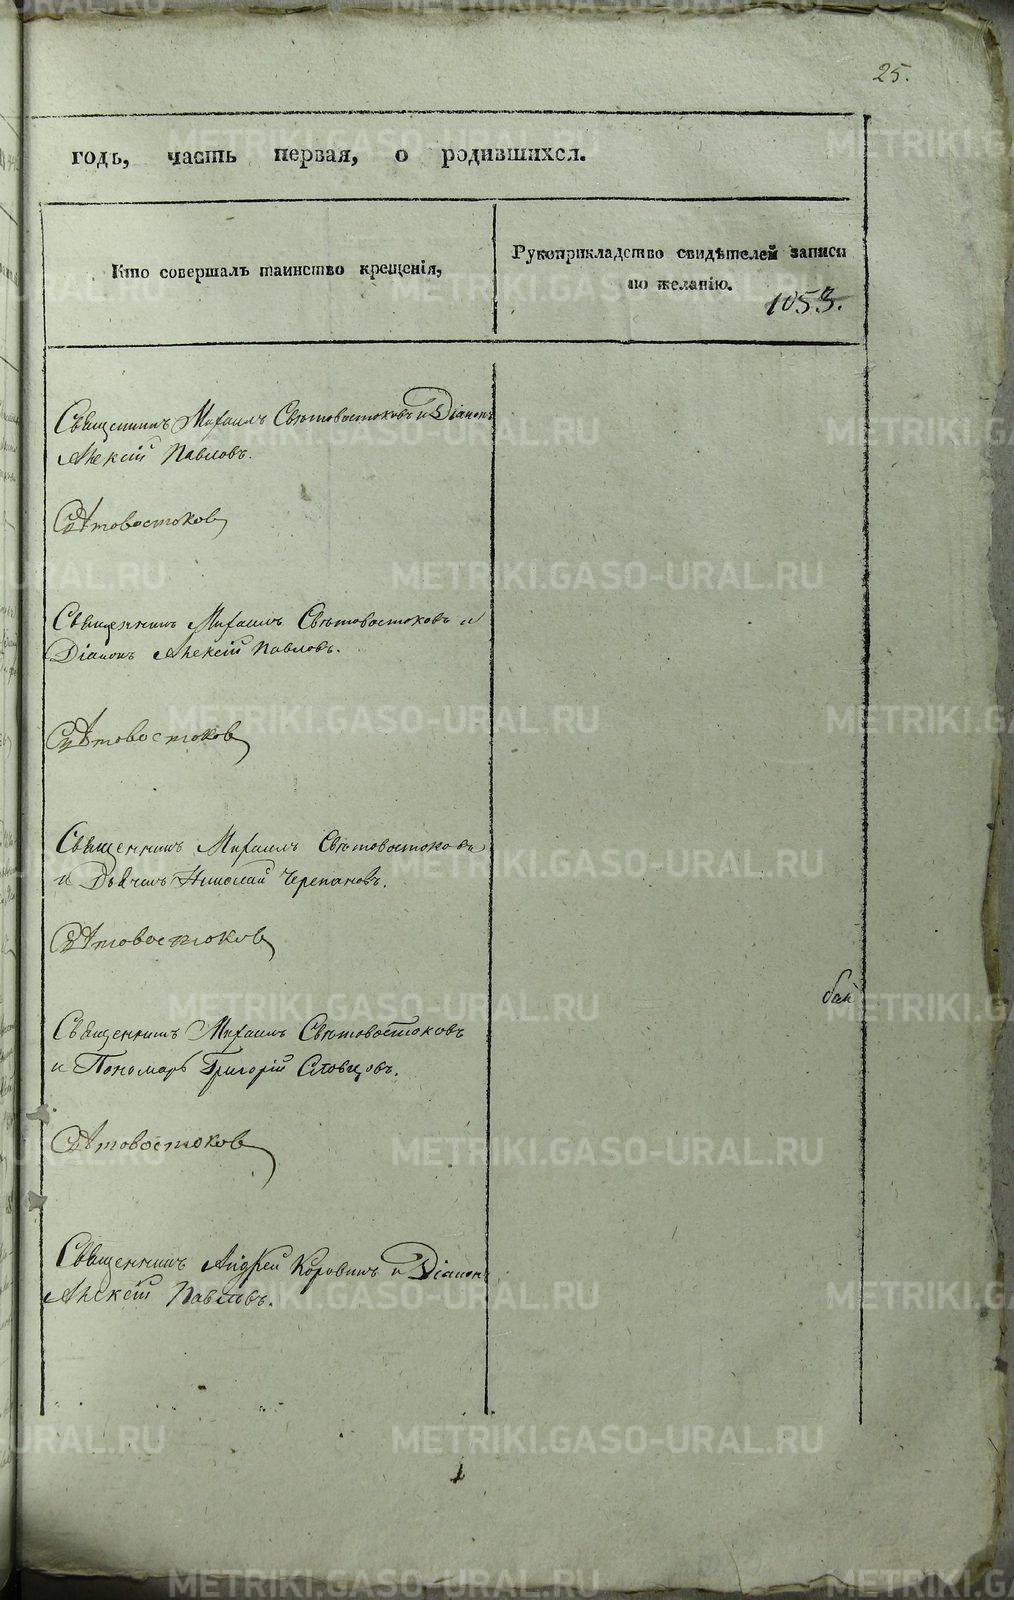 25.
годъ, часть первая, о родившихся.
Кто совершалъ таинство крещенія,
Рукоприкладство свидѣтелей записи
по желанію.
1053.
Священникъ Михаилъ Свѣтовостоковъ и Діаконъ
Алексій Павловъ.
Свѣтовостоковъ
Священникъ Михаилъ Свѣтовостоковъ и
Діаконъ Алексій Павловъ.
Свѣтовостоковъ
Священникъ Михаилъ Свѣтовостоковъ
и Дьячекъ Николай Черепановъ.
Свѣтовостоковъ
Священникъ Михаилъ Свѣтовостоковъ
и Пономарь Григорій Словцовъ.
Свѣтовостоковъ
Священникъ Андрей Коровинъ и Діаконъ
Алексій Павловъ.
METRIKI.GASO-URAL.RU